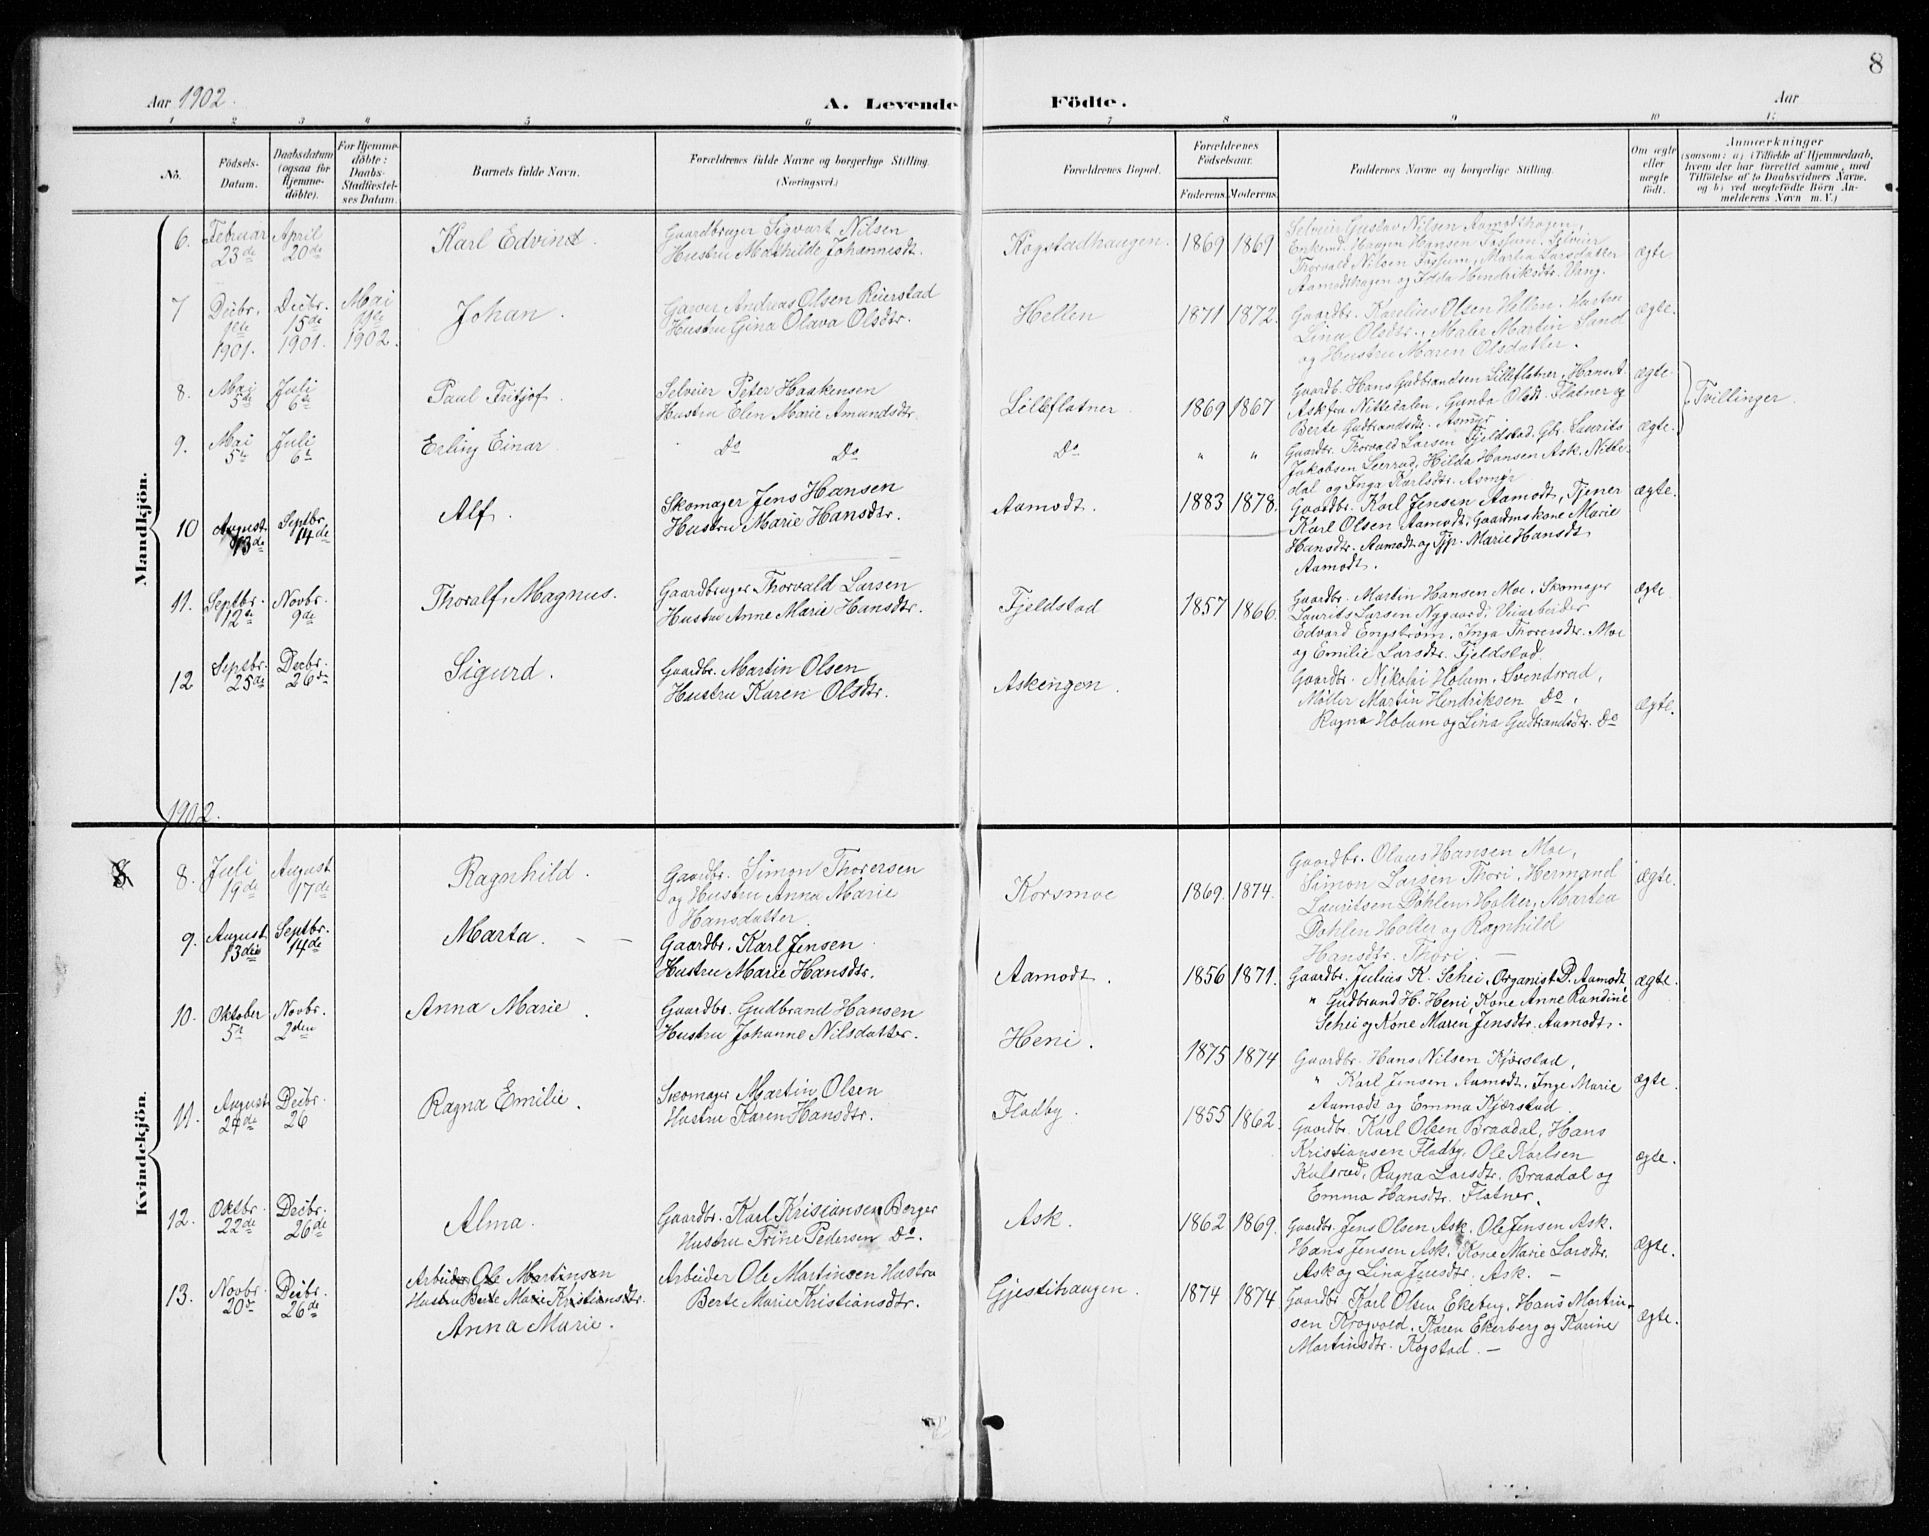 8
Aar 1902.
A. Levende Födte.
Aar
1 2 3 4 5 6 7 8 9 10 11
No.
Födsels-
Datum.
Daabsdatum
(ogsaa for
Hjemme-
døbte).
For Hjemme-
døbte:
Daabs-
Stadfæstel-
ses Datum.
Barnets fulde Navn.
Forældrenes fulde Navne og borgerlige Stilling.
(Næringsvei.)
Forældrenes Bopæl.
Forældrenes
Födselsaar.
Faderens. Moderens.
Faddernes Navne og borgerlig Stilling.
Om ægte
eller
uægte
födt.
Anmærkninger
(saasom: a) i Tilfælde af Hjemmedaab,
hvem der har forrettet samme, med
Tilföielse af to Daabsvidners Navne,
og b) ved uægtefödte Börn An-
melderens Navn m. V.)
Mandkjön.
6. Februar 23de
April 20de
Karl Edvind.
Gaardbruger Sigvart Nilsen
Hustru Mathilde Johannesdt.
Kogstadhaugen. 1869 1869
Selveier Gustav Nilsen Aamodthagen,
Enkemd. Haagen Hansen Fossum, Selveier
Thorvald Nilsen Fossum, Martia Larsdatter
Aamodthagen og Hilda Hendriksdtr. Vang.
ægte
7 Decbr. 1ste 1901.
Decbr. 15de 1901.
Mai 1902.
Johan.
Garver Andreas Olsen Reierstad
Hustru Gina Olava Olsdtr.
Hellen 1871 1872.
Gaardb. Karelius Olsen Hellen. Hustru
Lina Olsdtr., Maler Martin Sand
og Hustru Maren Olsdatter.
ægte.
8. Mai 5de
Juli 6te
Paul Fritjof.
Selveier Peter Haakensen
Hustru Elen Marie Amundsdtr.
Lilleflatner. 1869 1867
Gaardb. Hans Gudbrandsen Lilleflatner, Hans A.
Ask fra Nittedalen, Gunda Olsdt. Flatner og
Berte Gudbrandsdtr. Asmyr
ægte.
Tvillinger.
9. Mai 5te
Juli 6te
Erling Einar.
Do Do
Do " "
Gaardbr. Thorvald Larsen Fjeldstad. Gbr. Laurits
Jakobsen Leerrud, Hilda Hansen Ask. Nitte-
dal og Inga Karlsdtr. Asmyr
ægte.
10 August 13de
Septbr. 14de
Alf.
Skomager Jens Hansen
Hustru Marie Hansdtr.
Aamodt. 1883 1878.
Gaardbr. Karl Jensen Aamodt, Tjener
Karl Olsen Aamodt, Gaardmskone Marie
Hansdtr. Aamodt og Tjp. Marie Hansdt
Aamodt.
ægte.
11. Septbr. 12te
Novbr. 9de
Thoralf Magnus.
Gaardbruger Thorvald Larsen
Hustru Anne Marie Hansdtr.
Fjeldstad 1857 1866.
Gaardbr. Martin Hansen Moe, Skomager
Laurits Larsen Nygaard, Veiarbeider
Edvard Engstrøm, Inga Thorersdtr. Moe
og Emilie Larsdtr. Fjeldstad
ægte.
12 Septbr. 25de
Decbr. 26de
Sigurd.
Gaardbr. Martin Olsen
Hustru Karen Olsdtr.
Askengen.
Gaardbr. Nikolai Holum, Svendsrud,
Møller Martin Hendriksen Do,
Ragna Holum og Lina Gudbrandsdtr. Do
ægte.
1902.
Kvindekjön.
8. Juli 19de
August 17de
Ragnhild.
Gaardbr. Simon Thorersen
og Hustru Anna Marie
Hansdatter.
Korsmoe 1869. 1874.
Gaardbr. Olaus Hansen Moe,
Simon Larsen Thori, Hermand
Lauritsen Dohlen Holter, Martea
Dohlen Holter og Ragnhild
Hansdtr. Thori —
ægte.
9. August 13de
Septbr. 14de
Marta. — —
Gaardbr. Karl Jensen
Hustru Marie Hansdtr.
Aamodt. 1856 1871.
Gaardbr. Julius K. Schei, Organist P. Aamodt,
" Gudbrand H. Heni, Kone Anne Randine
Schei og Kone Maren Jensdtr. Aamodt.
ægte.
10. Oktober 5te
Novbr. 2den
Anna Marie.
Gaardbr. Gudbrand Hansen
Hustru Johanne Nilsdatter.
Heni. 1875 1874
Gaardbr. Hans Nilsen Kjærstad,
" Karl Jensen Aamodt, Inge Marie
Aamodt og Emma Kjærstad.
ægte.
11. August 24de
Decbr. 26
Ragna Emilie.
Skomager Martin Olsen
Hustru Karen Hansdtr.
Fladby. 1855 1862.
Gaardbr. Karl Olsen Braadal, Hans
Kristiansen Fladby, Ole Karlsen
Kulsrud, Ragna Larsdtr. Braadal og
Emma Hansdtr. Flatner.
ægte.
12. Oktbr. 22de
Decbr. 26de
Alma.
Gaardbr. Karl Kristiansen Berger
Hustru Trine Pedersen Do.
Ask. 1862 1869.
Gaardbr. Jens Olsen Ask. Ole Jensen Ask.
Hans Jensen Ask. Kone Marie Larsdtr.
Ask og Lina Jensdtr. Ask. —
ægte.
13. Novbr. 20de
Decbr. 26de
Arbeider Ole Martinsen
Hustru Berte Marie Kristiansdtr.
Anna Marie.
Arbeider Ole Martinsen Hustru
Berte Marie Kristiansdtr.
Gjestihaugen. 1874 1874
Gaardbr. Karl Olsen Ekeberg, Hans Martin-
sen Krogvold, Karen Ekerberg og Karine
Martinsdtr. Kogstad. —
ægte.